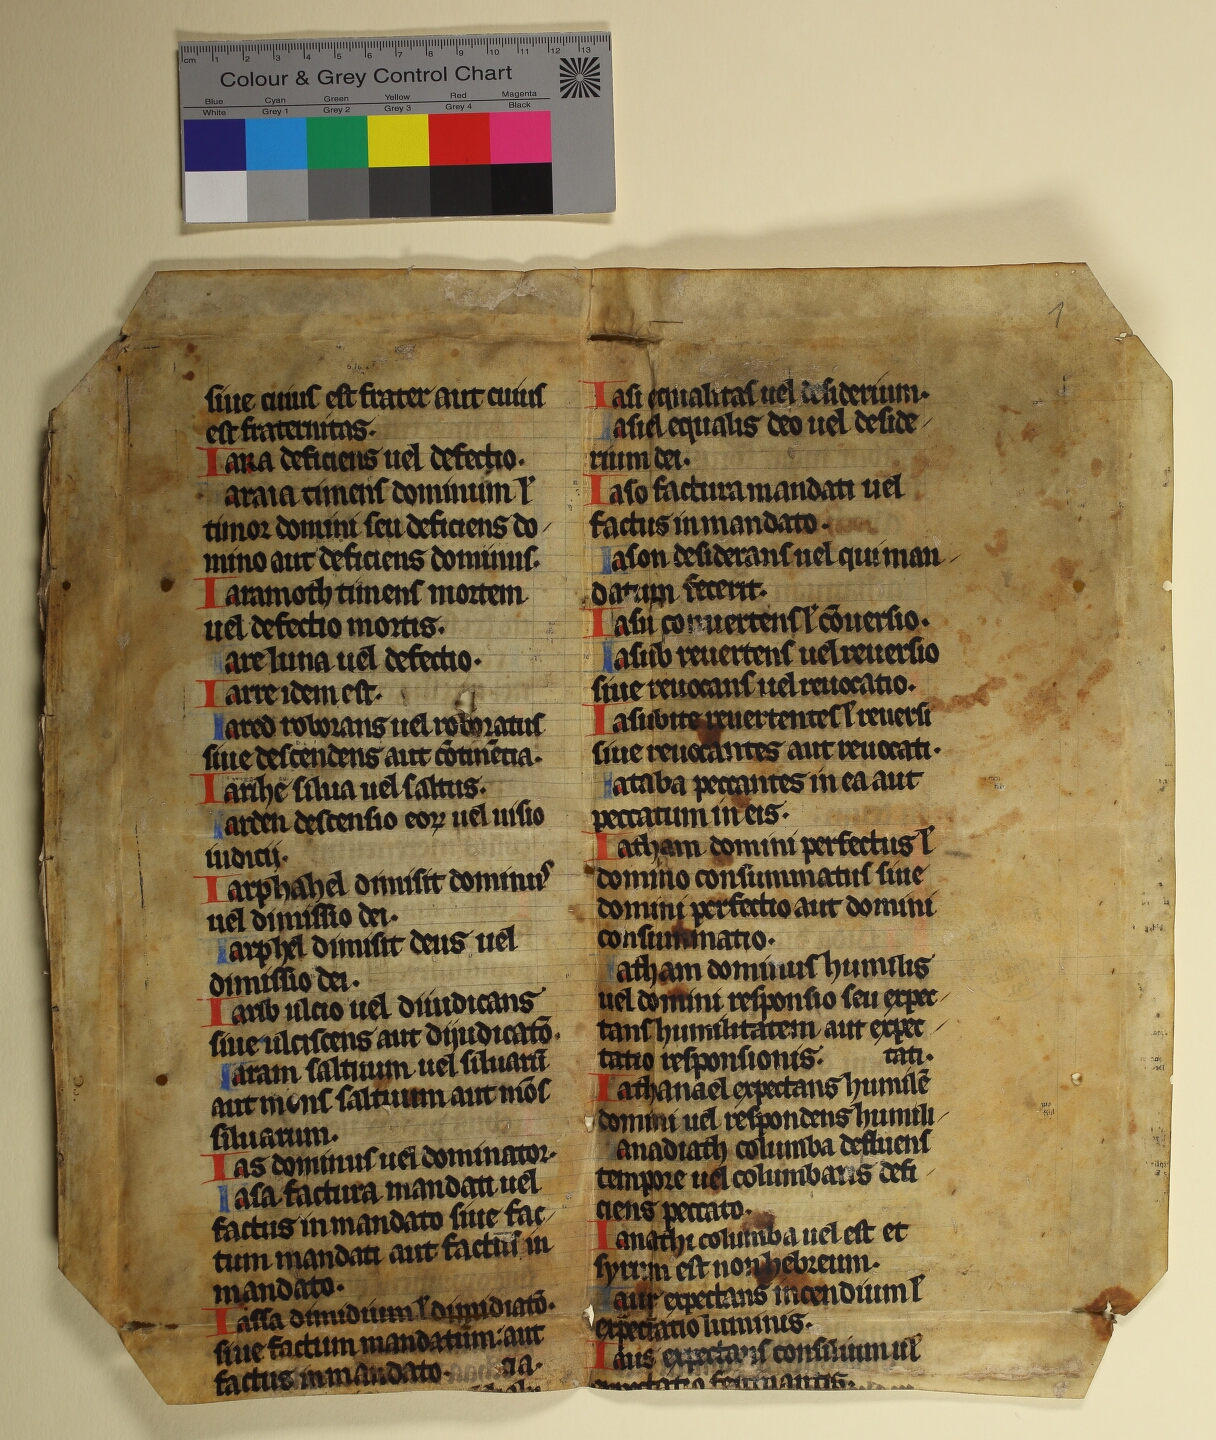 cm 1 2 3 4 5 6 7 8 9 10 11 12 13
Colour & Grey Control Chart
Blue Cyan Green Yellow Red Magenta
White Grey 1 Grey 2 Grey 3 Grey 4 Black
1
siue cuius est frater aut cuius
est fraternitas.
Iara deficiens uel defectio.
Iaraia timens dominum ł
timor domini seu deficiens do
mino aut deficiens dominus.
Iaramoth timens mortem
uel defectio mortis.
Iare luna uel defectio.
Iarre idem est.
Iared roborans uel roboratus
siue descendens aut cōtinētia.
Iarihe silua uel saltus.
Iarden descensio eoꝝ uel uisio
iudicij.
Iarphahel dimisit dominus
uel dimissio dei.
Iarphel dimisit deus uel
dimissio dei.
Iarib ulcio uel diiudicans
siue ulciscens aut dijudicatō.
Iaram saltuum uel siluarū
aut mons saltuum aut mōs
siluarum.
Ias dominus uel dominator.
Iasa factura mandati uel
factus in mandato siue fac
tum mandati aut factus in
mandato.
Iassa dimidium ł dimidiatō.
siue factum mandatum: aut
factus in mandato.
Iasi equalitas uel desiderium.
Iasiel equalis deo uel deside
rium dei.
Iaso factura mandati uel
factus in mandato.
Iason desiderans uel qui man
datum fecerit.
Iasu conuertens ł cōuersio.
Iasub reuertens uel reuersio
siue reuocans uel reuocatio.
Iasubite reuertentes ł reuersi
siue reuocantes aut reuocati.
Iataba peccantes in ea aut
peccatum in eis.
Iatham domini perfectus ł
domino consummatus siue
domini perfectio aut domini
consummatio.
Iatham dominus humilis
uel domini responsio seu expec
tans humilitatem aut expec
tatio responsionis. tati.
Iathanael expectans humilē
domini uel respondens humili
Ianadiath columba defluens
tempore uel columbaris defi
ciens peccato.
Ianathi columba uel est et
syrum est non hebreum.
Iaur expectans incendium ł
expectatio luminis.
Iaus expectans consilium uł